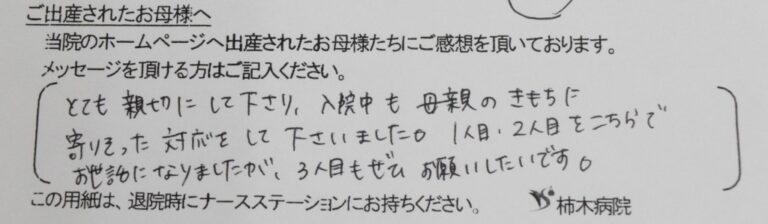 ご出産されたお母様へ
当院のホームページへ出産されたお母様たちにご感想を頂いております。
メッセージを頂ける方はご記入ください。
とても親切にして下さり、入院中も母親のきもちに
寄りそった対応をして下さいました。1人目・2人目をこちらで
お世話になりましたが、3人目もぜひお願いしたいです。
この用紙は、退院時にナースステーションにお持ちください。 柿木病院